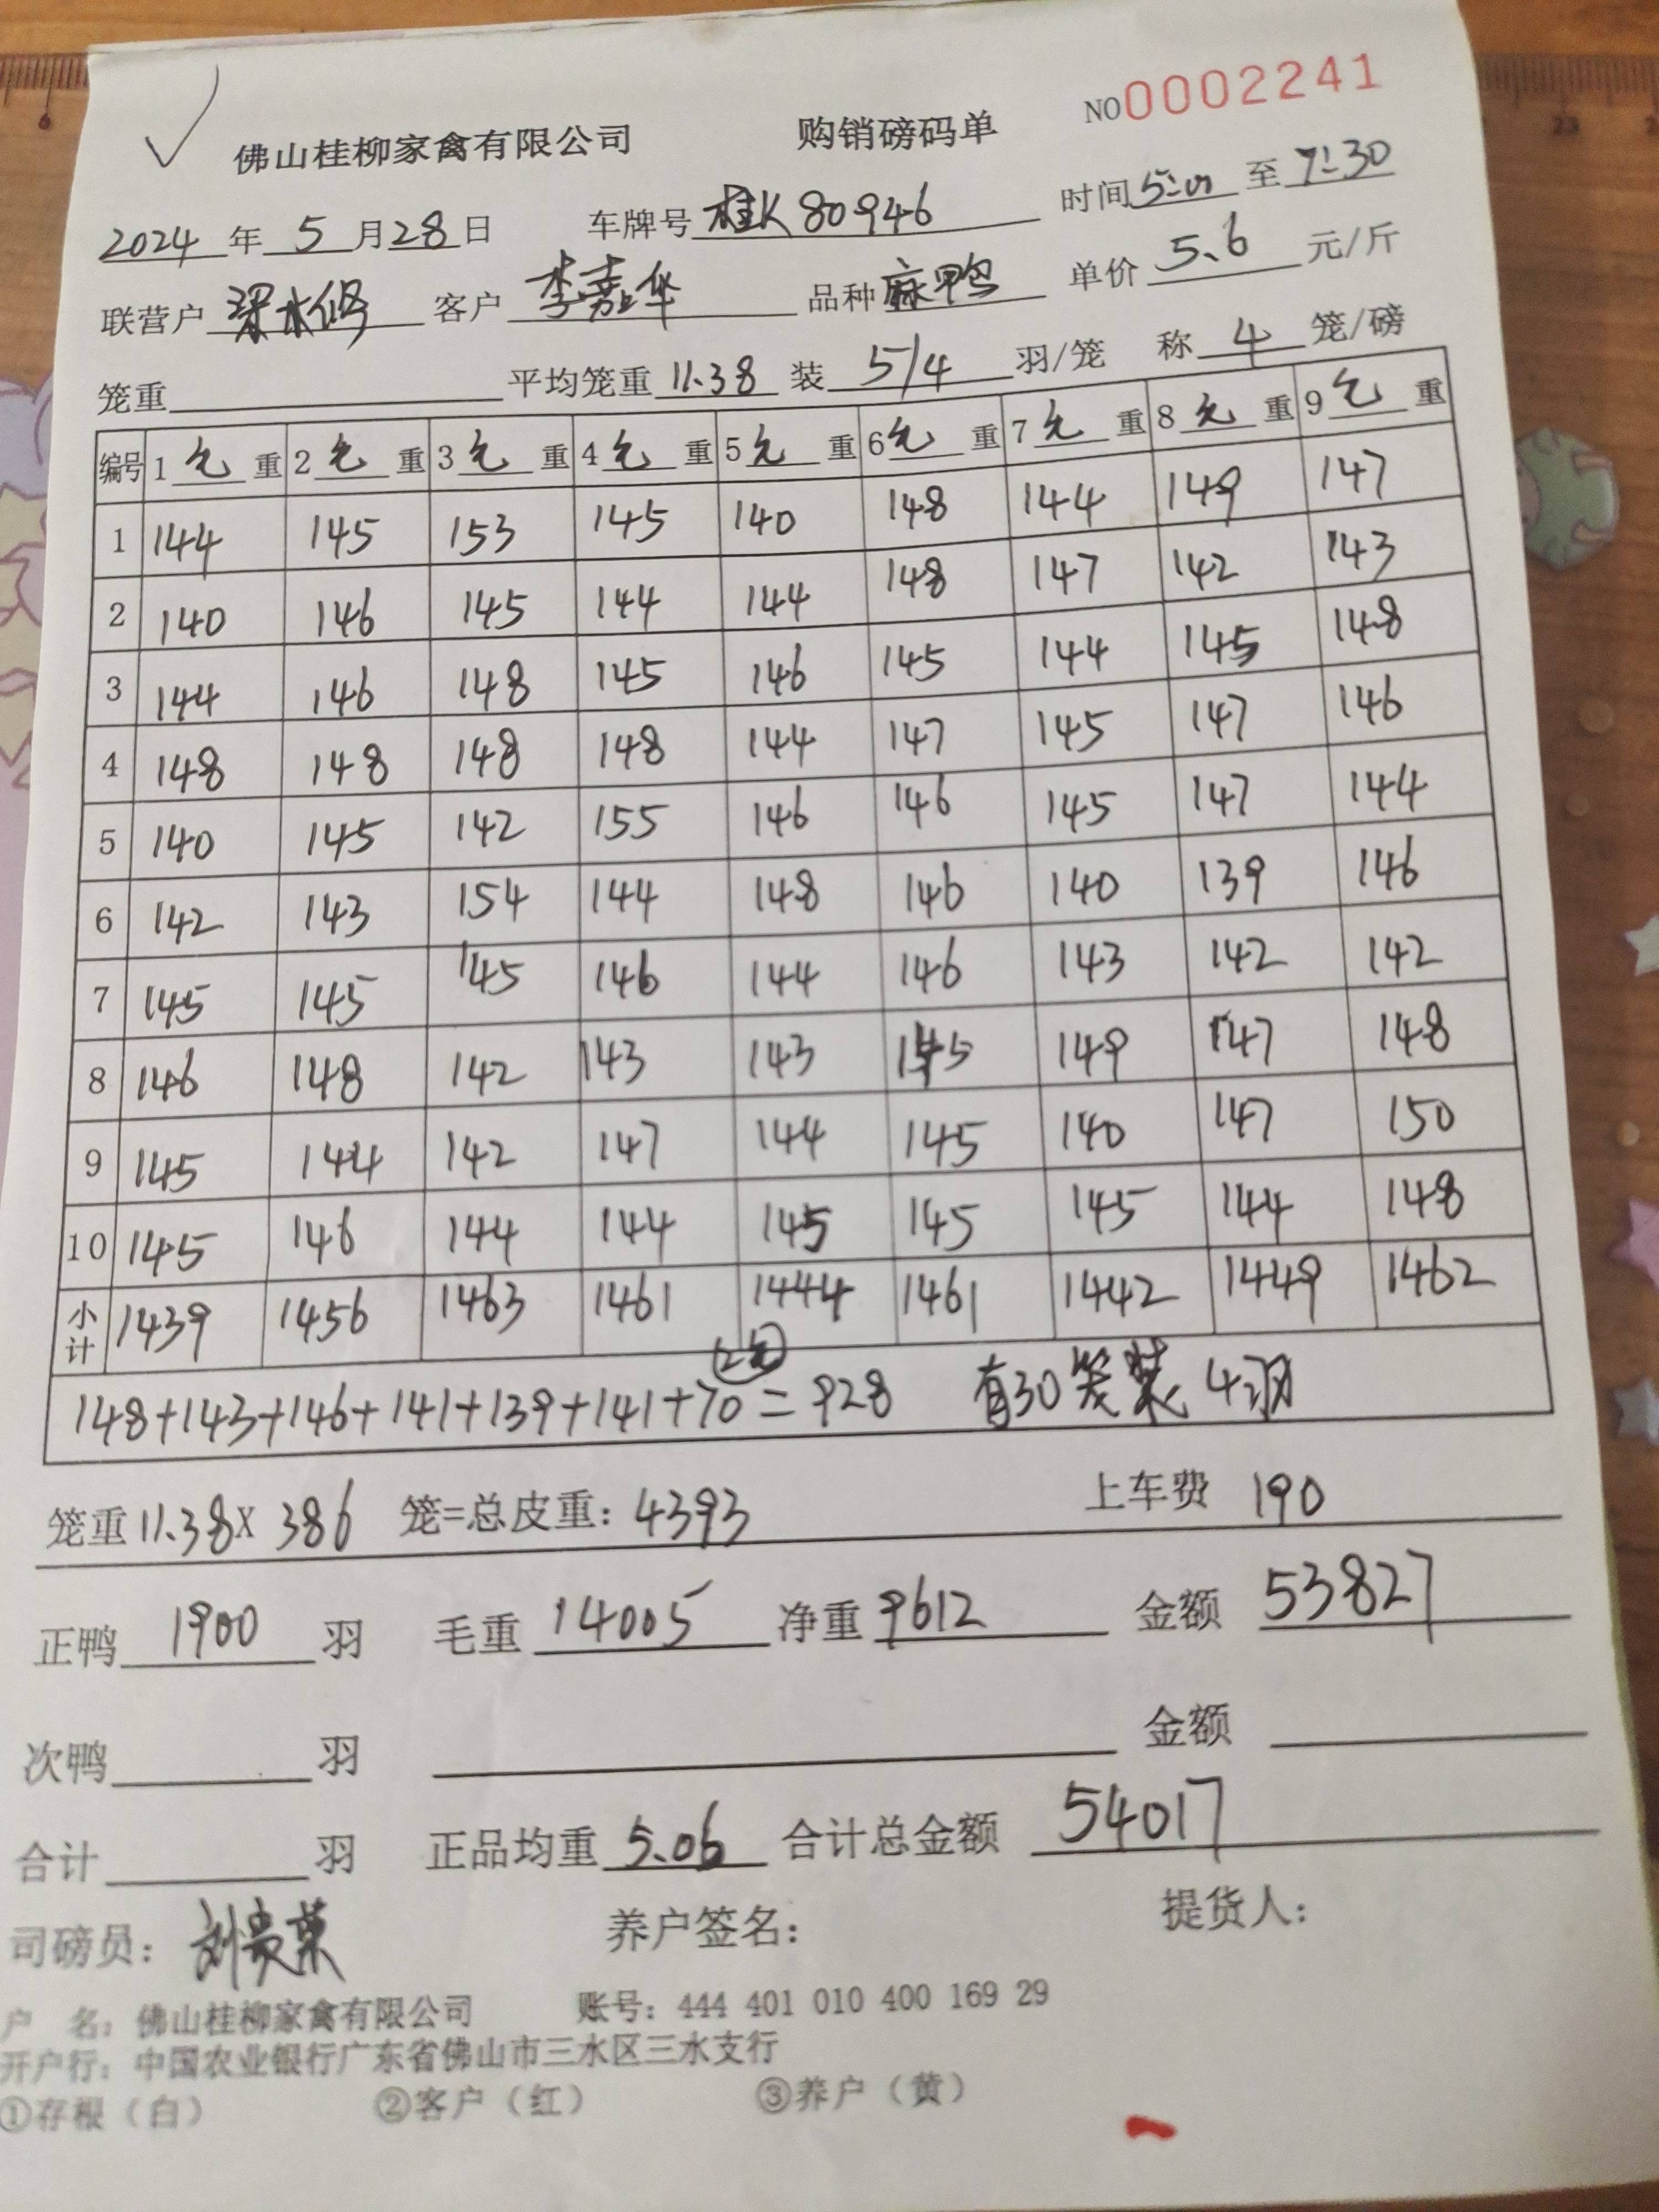 佛山桂柳家禽有限公司 购销磅码单 NO0002241
2024年5月28日 车牌号桂K80946 时间5:00至7:30
联营户梁水修 客户李嘉华 品种麻鸭 单价5.6元/斤
笼重 平均笼重11.38装5/4羽/笼 称4笼/磅
编号 1毛重 2毛重 3毛重 4毛重 5毛重 6毛重 7毛重 8毛重 9毛重
1 144 145 153 145 140 148 144 149 147
2 140 146 145 144 144 148 147 142 143
3 144 146 148 145 146 145 144 145 148
4 148 148 148 148 144 147 145 147 146
5 140 145 142 155 146 146 145 147 144
6 142 143 154 144 148 146 140 139 146
7 145 145 145 146 144 146 143 142 142
8 146 148 142 143 143 145 149 147 148
9 145 144 142 147 144 145 140 147 150
10 145 146 144 144 145 145 145 144 148
小计 1439 1456 1463 1461 1444 1461 1442 1449 1462
2笼
148+143+146+141+139+141+70=928 有30笼装4羽
笼重11.38X386笼=总皮重:4393 上车费 190
正鸭1900羽 毛重14005净重9612 金额53827
次鸭 羽 金额
合计 羽 正品均重5.06合计总金额54017
司磅员:刘贵荣 养户签名: 提货人:
户 名:佛山桂柳家禽有限公司 账号:444 401 010 400 169 29
开户行:中国农业银行广东省佛山市三水区三水支行
①存根(白) ②客户(红) ③养户(黄)